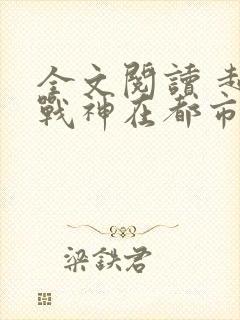 全文閱讀
戰神在都市
梁鉄君